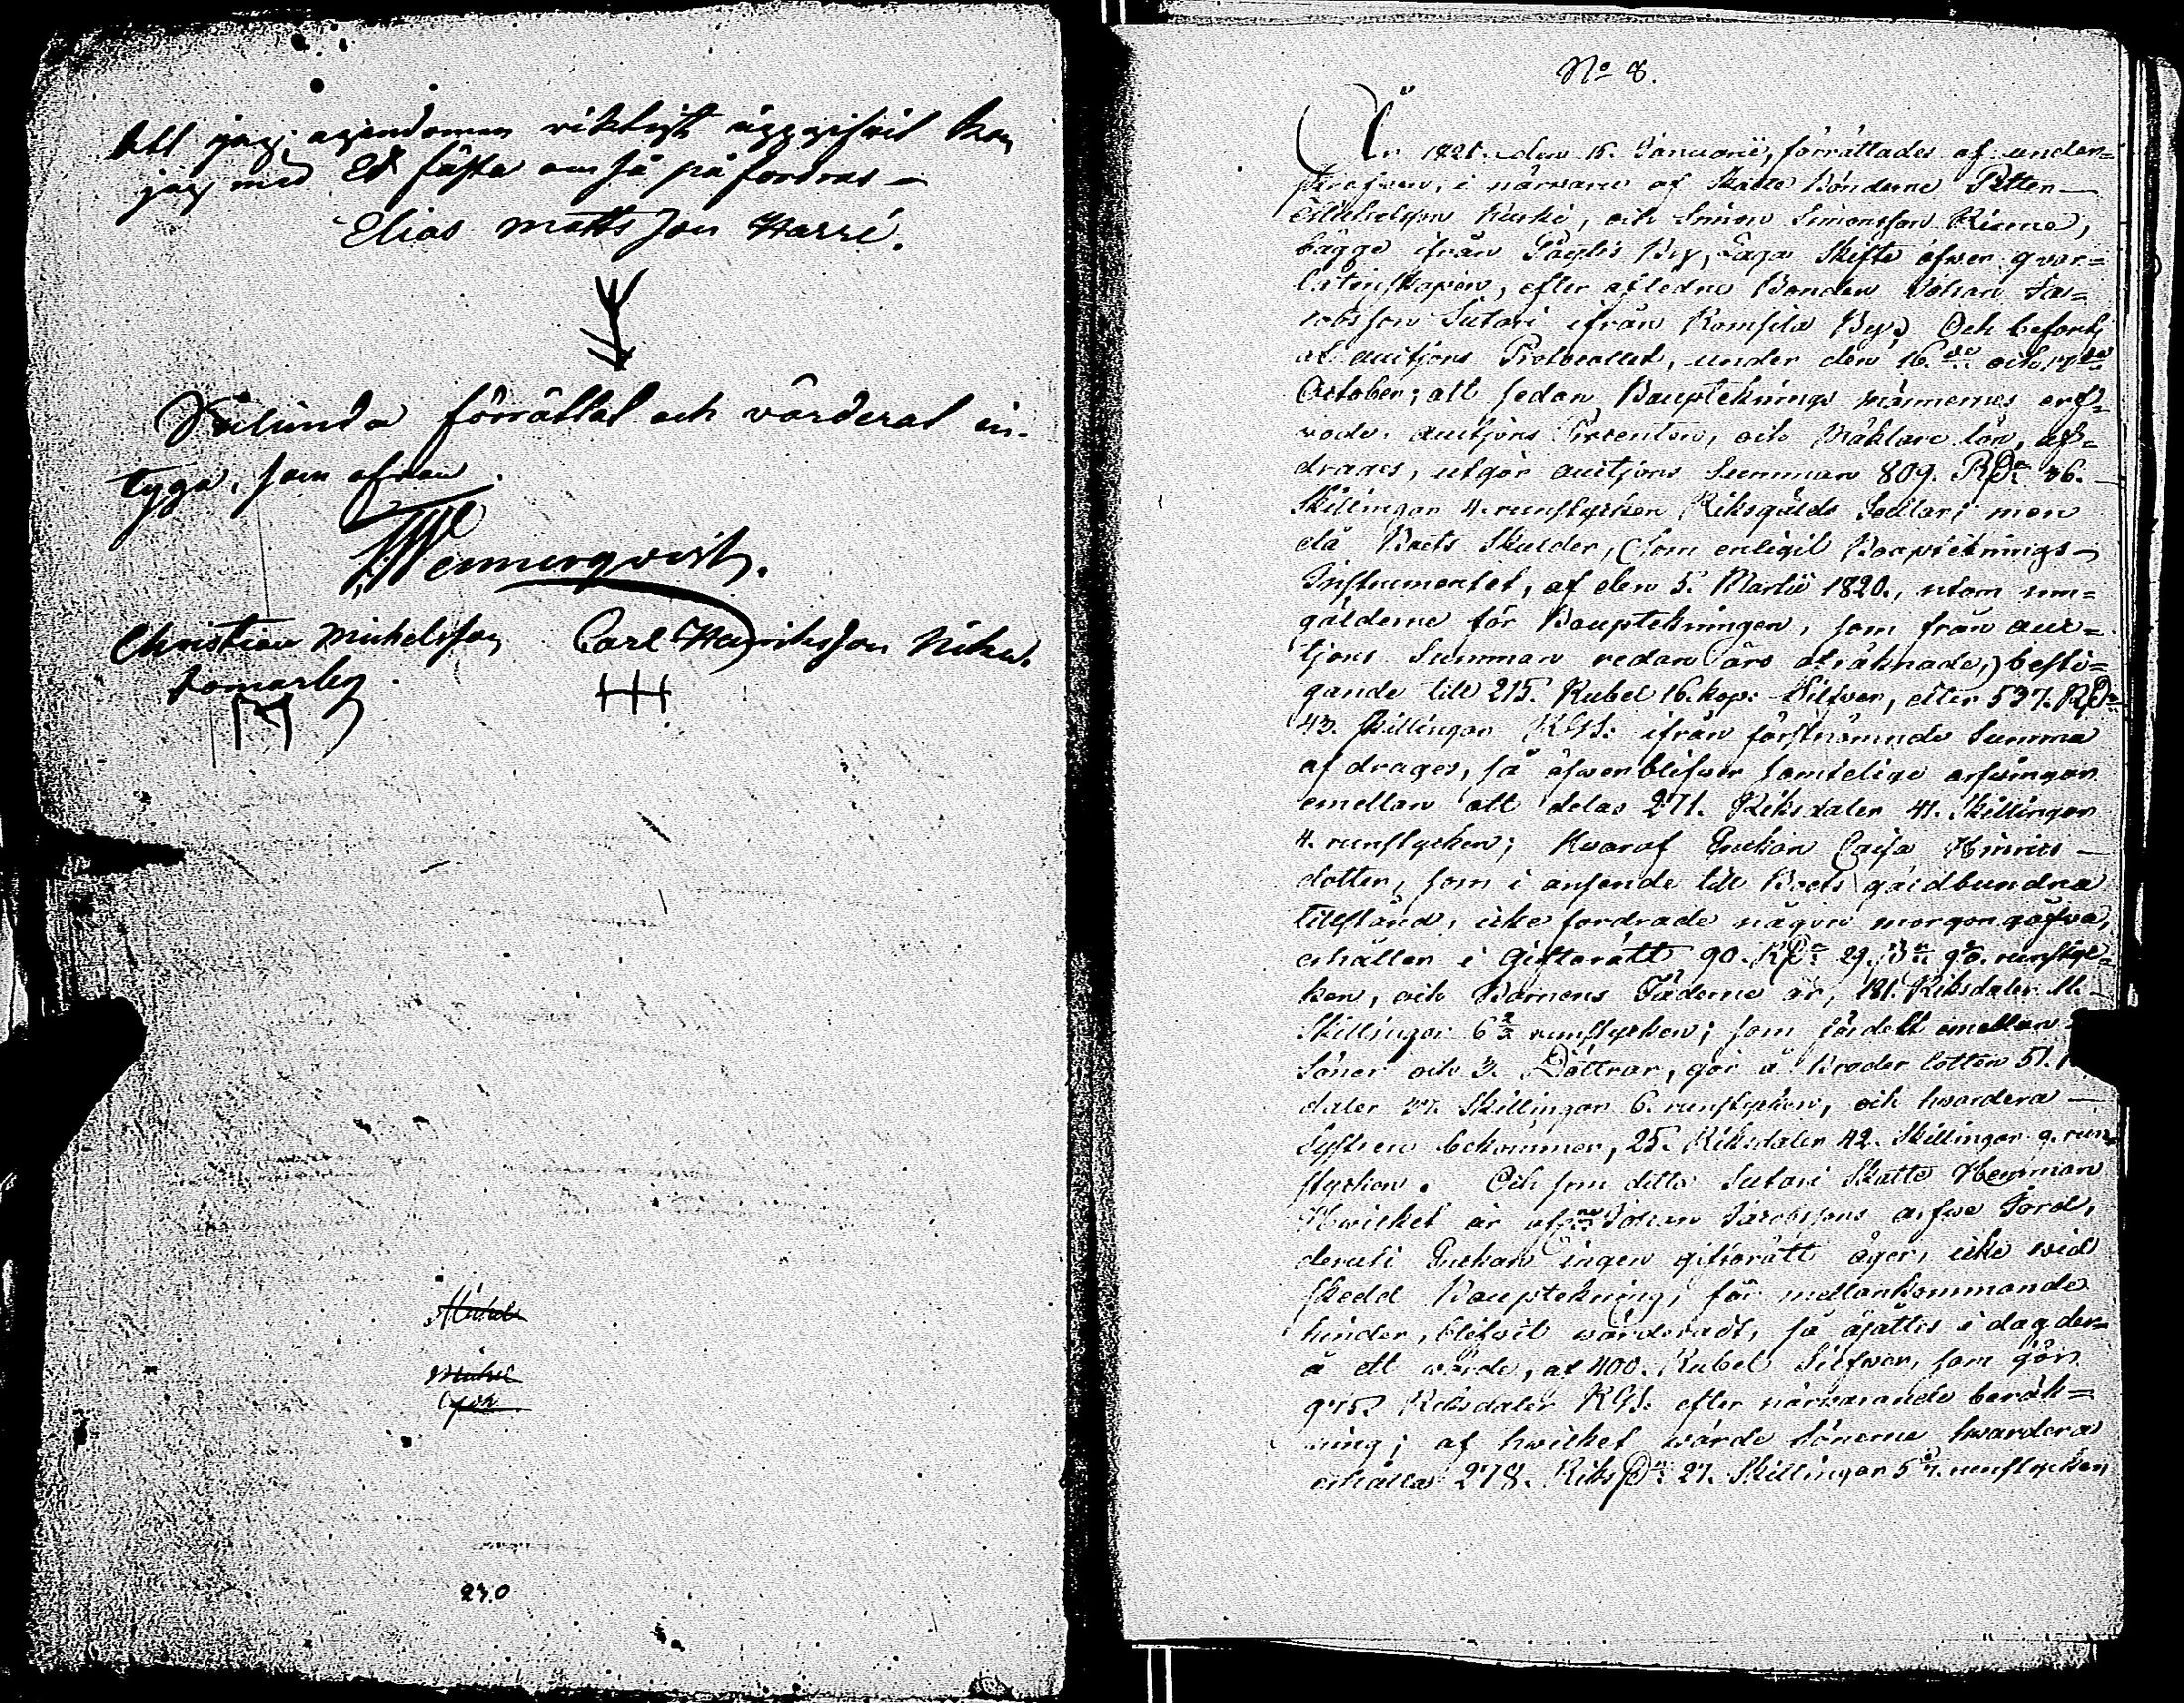 Att jag egendomen riktigt uppgifvit kan
jag med Ed fästa om så på fordras —
Elias Mattsson Harri.
Sålunda förrättat och värderat in-
tyga, som ofvan.
Wennerqvist.
Christian Michelsson Carl Henriksson
Michel
Michel
230
No 8.
År 1821. den 15. Januarii, förrättades af under=
skrefven, i närvaro af Skatte Bönderne Petter
Michelsson, och Simon Simonsson Rinne,
bägge ifrån By, Laga Skifte öfwer qvar=
låtenskapen, efter afledne Bonden Johan Ja=
cobsson Sutari ifrån By; Och befants
at auctions Protocollet, under den 16.de och 17.de
October; att sedan Bouptecknings männernes arf=
wode, auctions Procenten, och Mäklare lön, af=
drages, utgör auctions Summan 809. RD. 36.
Skillingar 4. runstycken Riksgälds Sedlar; men
då Boets Skulder, (som enligit Bouptecknings
Instrumentet, af den 5. Martii 1820., utom om=
gälderne för Bouptekningen, som från auc=
tions Summan redan äro afräknade,) besti=
gande till 215. Rubel 16. kop. Silfver, eller 537. RD.
43. skillingar RGS. ifrån förstnämnde Summa
afdrages, så öfwerblifwer samtelige arfwingar
emellan att delas 271. Riksdaler 41. Skillingar
4. runstycken; hwaraf Enckan Caisa Hinrics
dotter, som i anseende till Boets gäldbundna
tillstånd, icke fordrade någon morgongåfva,
erhåller i Giftorätt 90. RD. 29. runstyc=
ken, och Barnens Fäderne är, 181. Riksdaler 11.
Skillingar 6 2/3 runstycken; som fördelt emellan
Söner och 3. Döttrar, gör à Broder lotten 51.
daler 37. Skillingar 6. runstycken, och hwardera
Systern bekommer, 25. Riksdaler 42. Skillingar 9. run=
stycken. Och som detta Sutari Skatte Hemman
Hwilket är afl.ne Johan Jacobssons arfwe Jord,
deruti Enckan ingen giftorätt äger, icke wid
skedd Bouptekning, för mellankommande
hinder, blifwit wärderadt, så åsättes i dag der=
å ett wärde, af 400. Rubel Silfwer, som gör
975. Riksdaler RGS. efter närwarande beräk=
ning; af hwilket wärde Sönerne hwardera
erhålla 278. Riks D. 27. Skillingar 5 runstycken